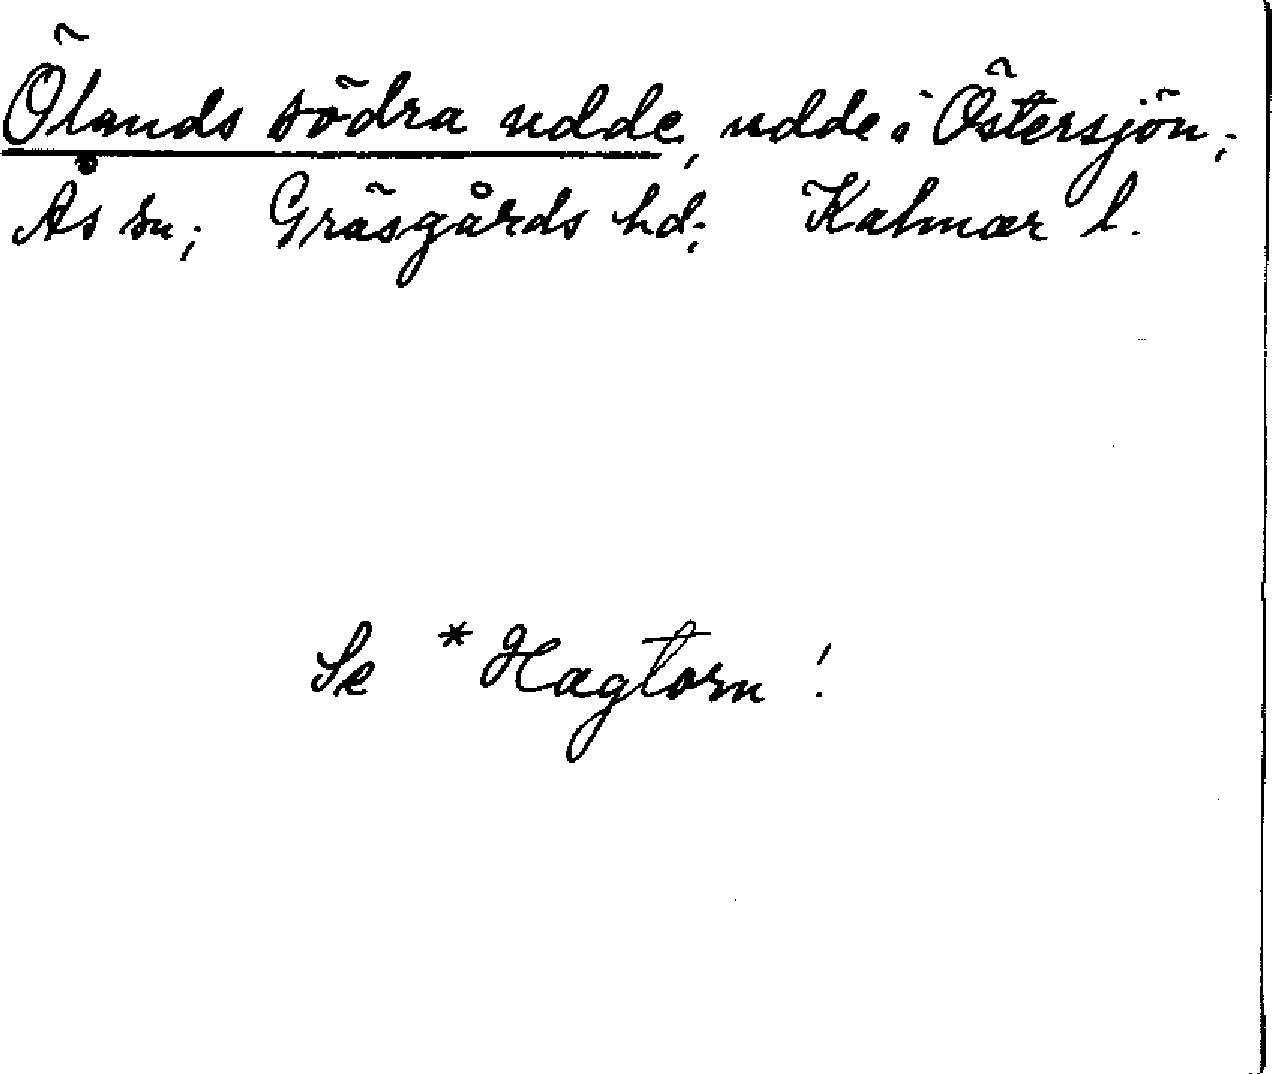 Ölands södra udde, udde i Östersjön;
Ås sn; Gräsgårds hd; Kalmar l.
Se *Hagtorn!